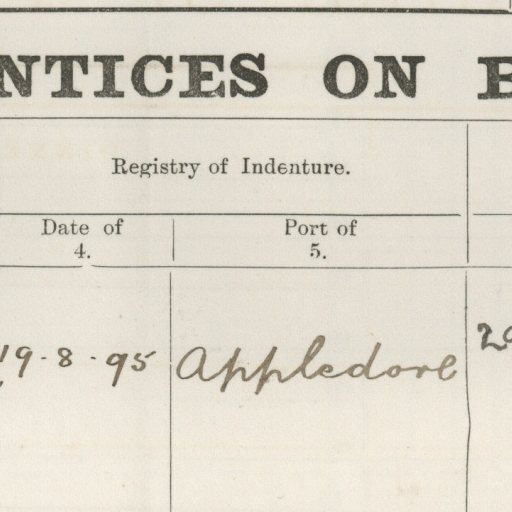 NTICES ON B
Registry of Indenture.
Date of
4.
Port of
5.
19-8-95
Appledore